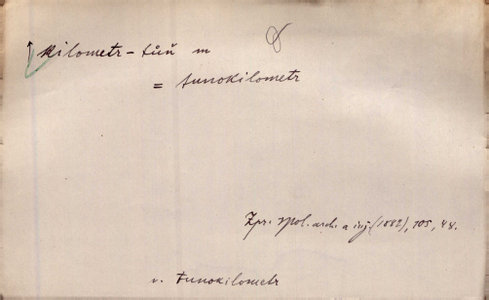 kilometr-tůn m 8
= tunokilometr
Zpr. spol. arch. a inž. (1882), 105, 48.
v. tunokilometr